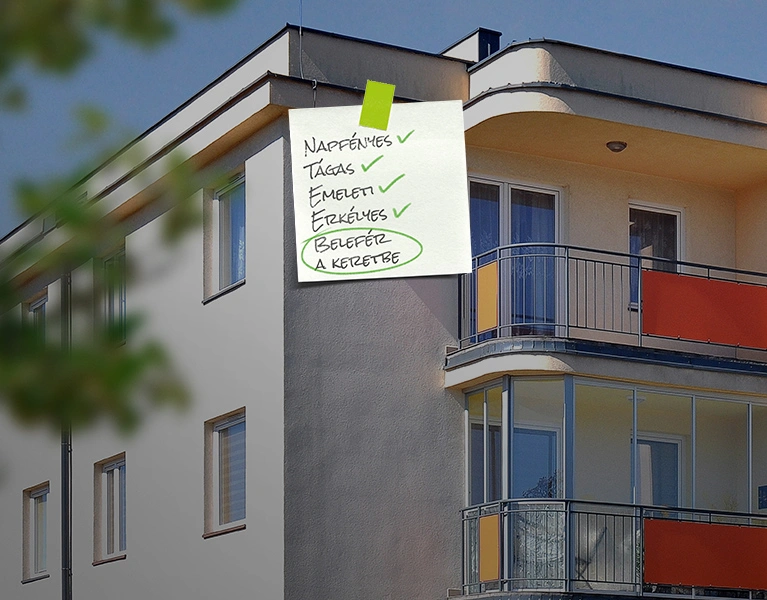 Napfényes
Tágas
Emeleti
Erkélyes
Belefér
a keretbe